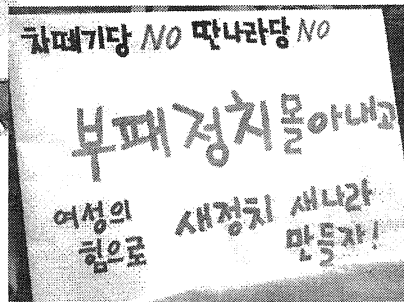 차떼기당 NO 딴나라당 NO
부패정치 몰아내고
여성의 새정치 새나라
힘으로 만들자!